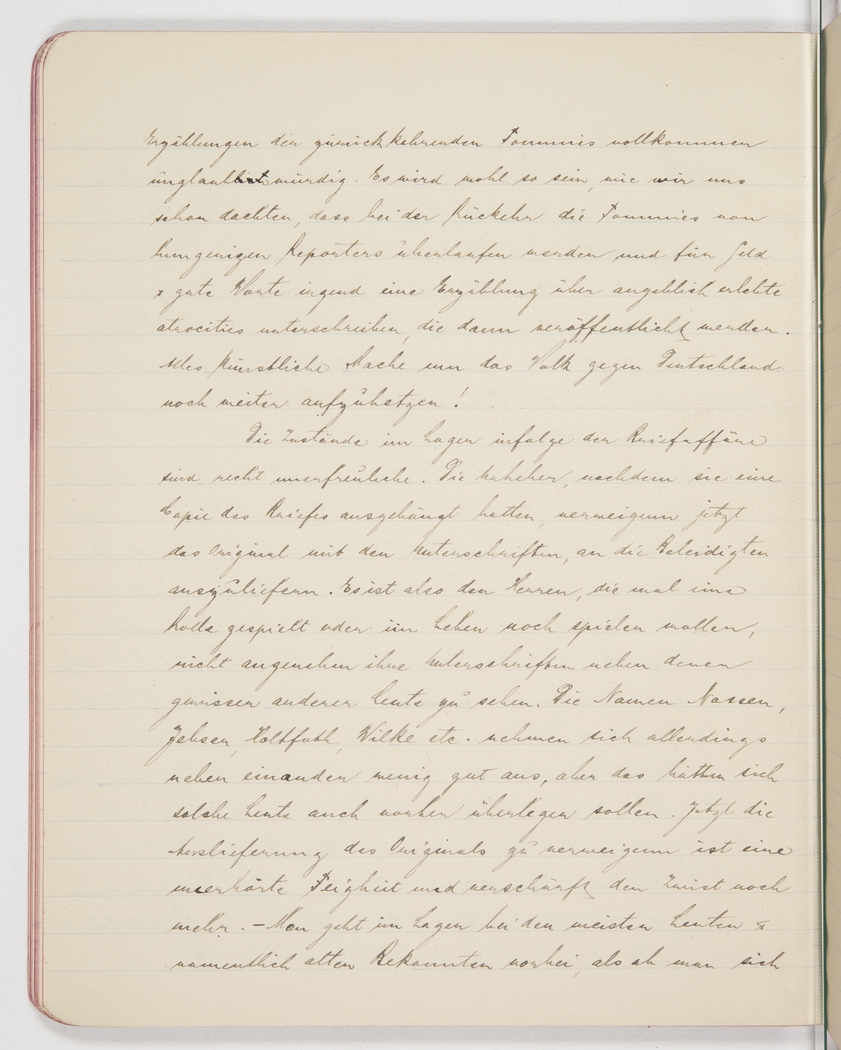 Erzählungen der zurückkehrenden Tommies vollkommen
unglaubwürdig. Es wird wohl so sein, wie wir uns
schon dachten, dass bei der Rückehr die Tommies von
hungerigen Reporters überlaufen werden und für Geld
& gute Worte irgend eine Erzählung über angeblich erlebte
atrocities unterschreiben, die dann veröffentlicht werden.
Alles künstliche Mache um das Volk gegen Deutschland
noch weiter aufzuhetzen!
Die Zustände im Lager infolge der Briefaffäre
sind recht unerfreuliche. Die Urheber, nachdem sie eine
Copie des Briefes ausgehängt hatten, verweigern jetzt
das Original mit den Unterschriften, an die Beleidigten
auszuliefern. Es ist also den Herren, die mal eine
Rolle gespielt oder im Leben noch spielen wollen,
nicht angenehm ihre Unterschriften neben denen
gewisser anderer Leute zu sehen. Die Namen Nossen,
Jebsen, Holtfoth, Wilke etc. nehmen sich allerdings
neben einander wenig gut aus, aber das hätten sich
solche Leute auch vorher überlegen sollen. Jetzt die
Auslieferung des Originals zu verweigern ist eine
unerhörte Feigheit und verschärft den Zwist noch
mehr. – Man geht im Lager bei den meisten Leuten &
namentlich alten Bekannten vorbei, als ob man sich